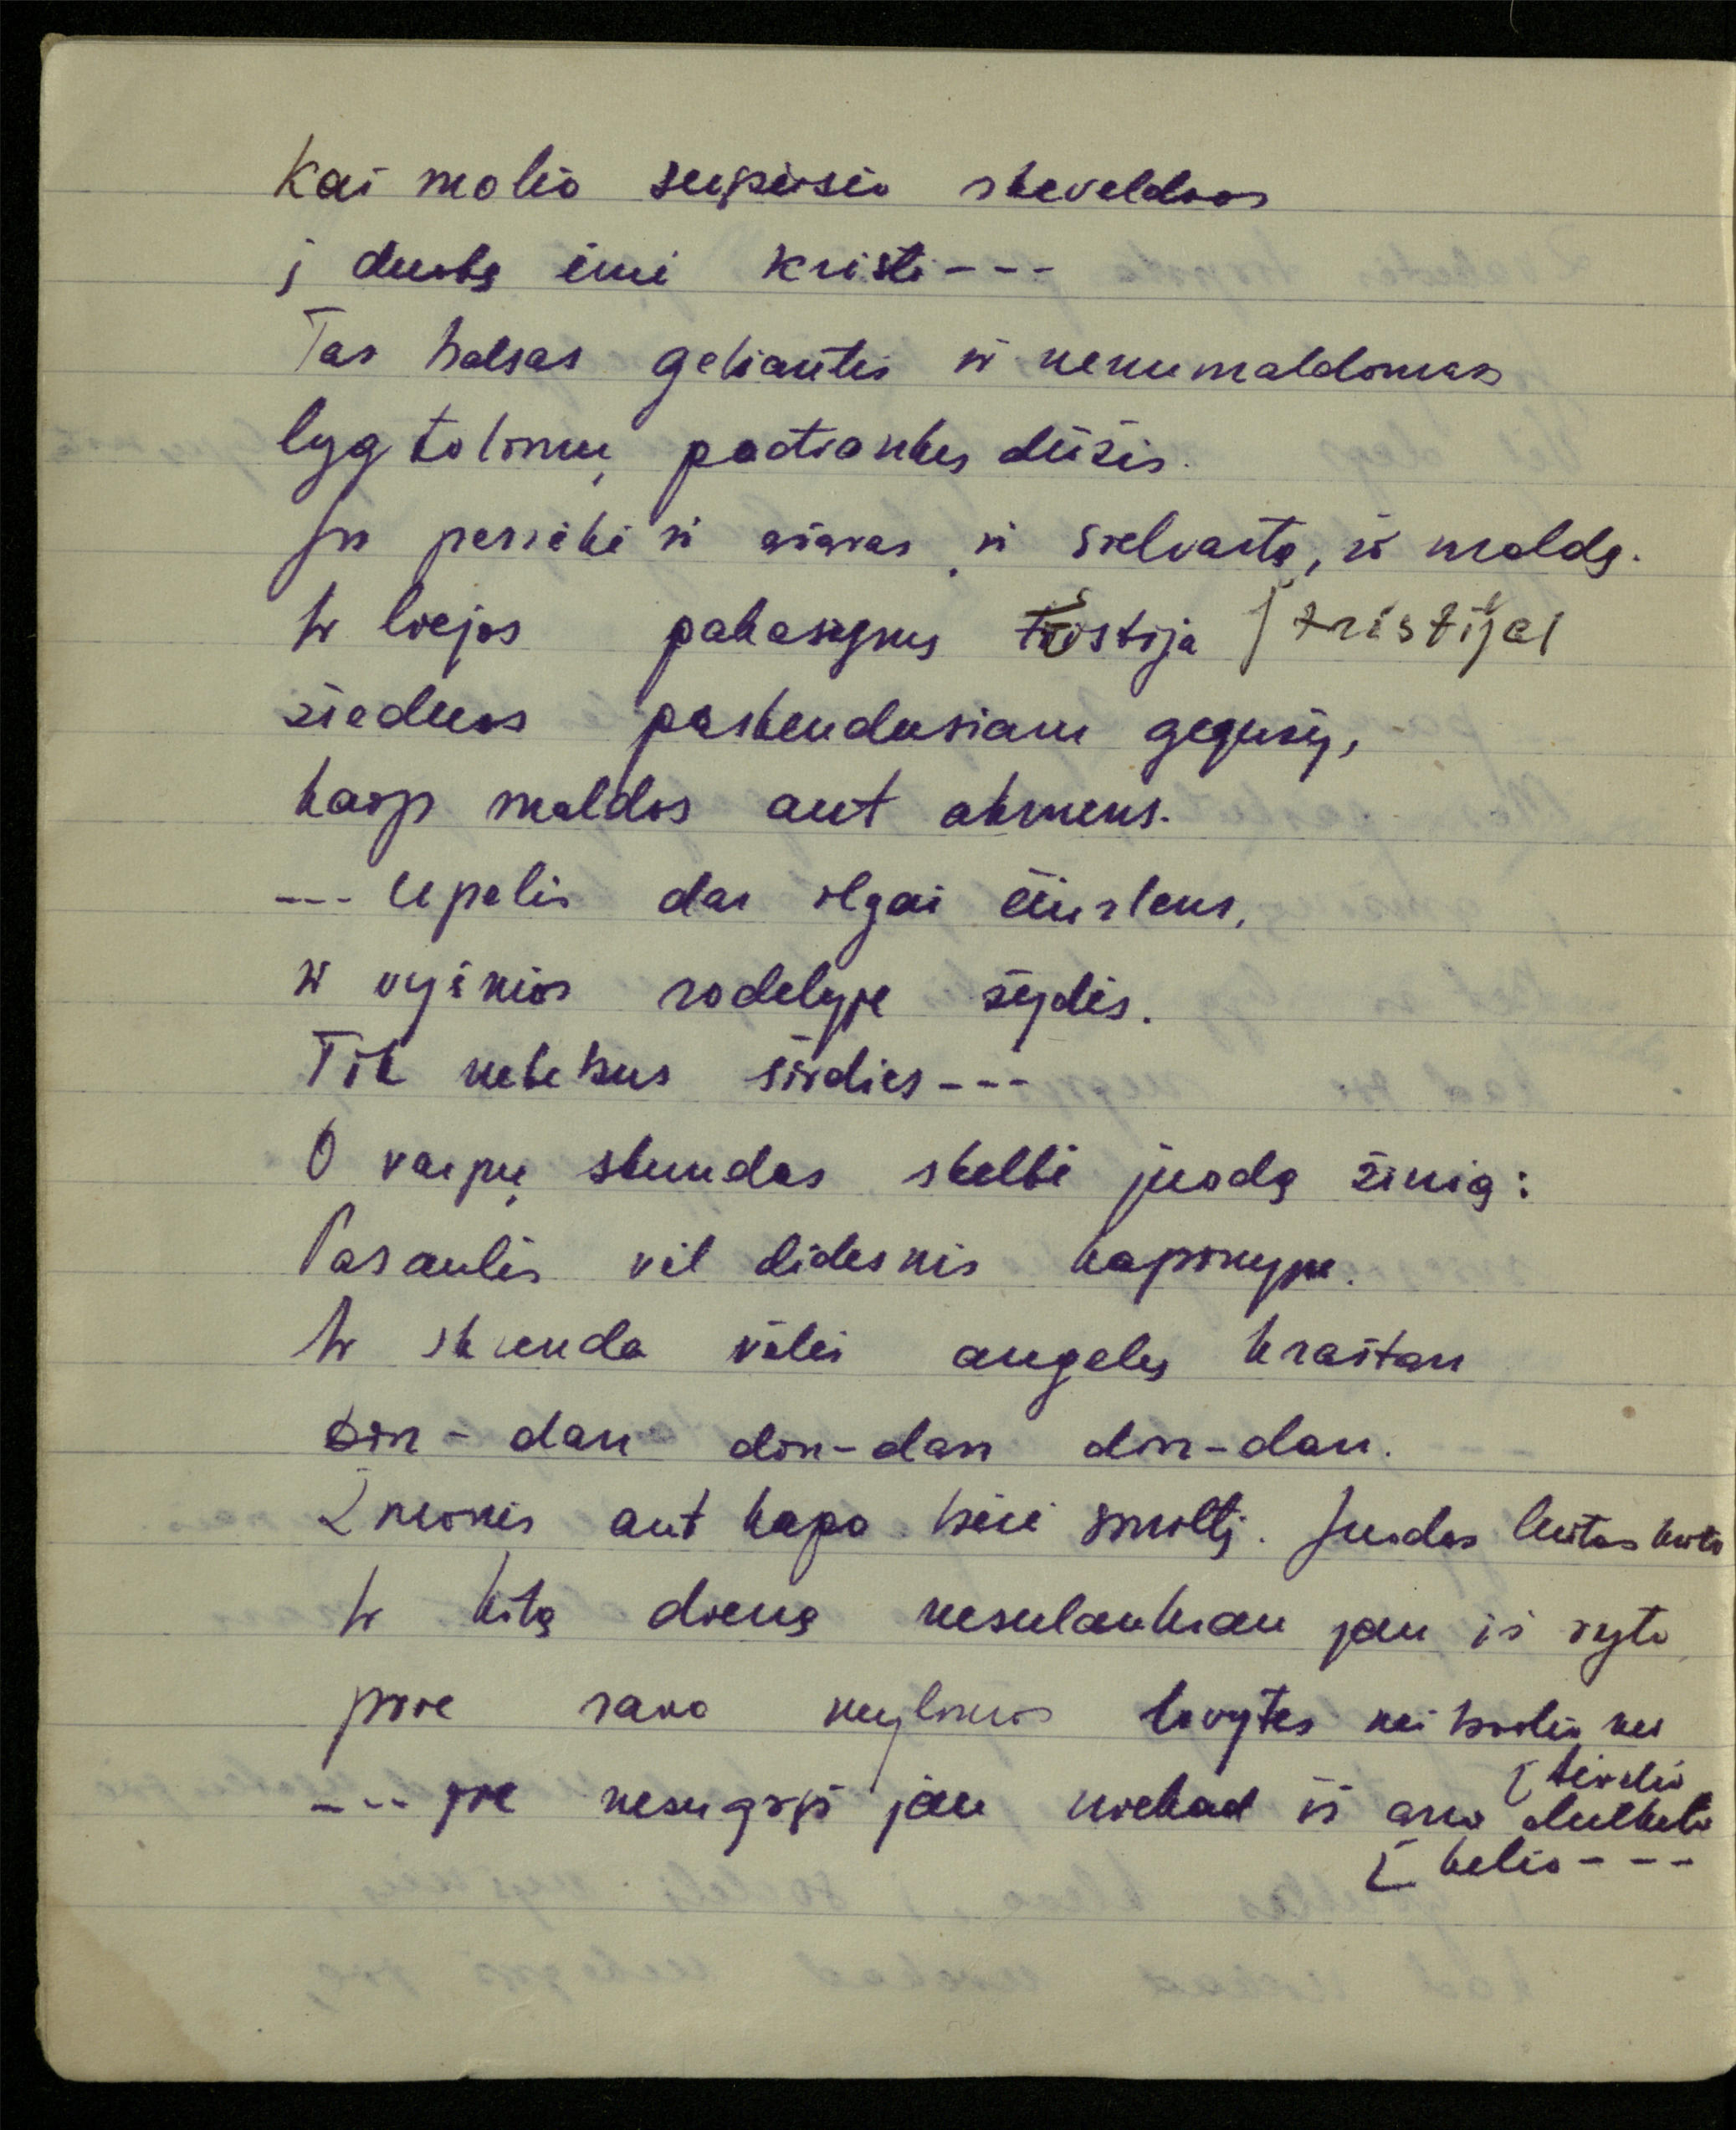 Kai molio supirsio skeveldros
į duobę ėmė kristi - - -
Tas balsas geliantis ir nenumaldomas
lyg tolimų patrankų dūžis.
Jis persekė ir ašaras, ir sielvartą, ir maldą.
Ir liejos pakasynų tristija [tristija]
žieduos paskendusiam gegužy,
tarp maldos ant akmens.
--- Upelis dar ilgai čiurlens,
ir vyšnios sodelyje žydės.
Tik nebebus širdies - - -
O varpų skundas skelbė juodą žinią:
Pasaulis vėl didesnis kapinyne.
Ir skunda vėlei angelų kraštan
din - dan din-dan din-dan.
Žmonės ant kapo bėrė smiltį. Juodas
Ir kitą dieną nesulaukiau jau iš ryto
prie savo mylimos lovytės nei brolio nei
[tėvelio
--- jie nesugrįš jau niekad iš ano dulkėto
[kelio - - -